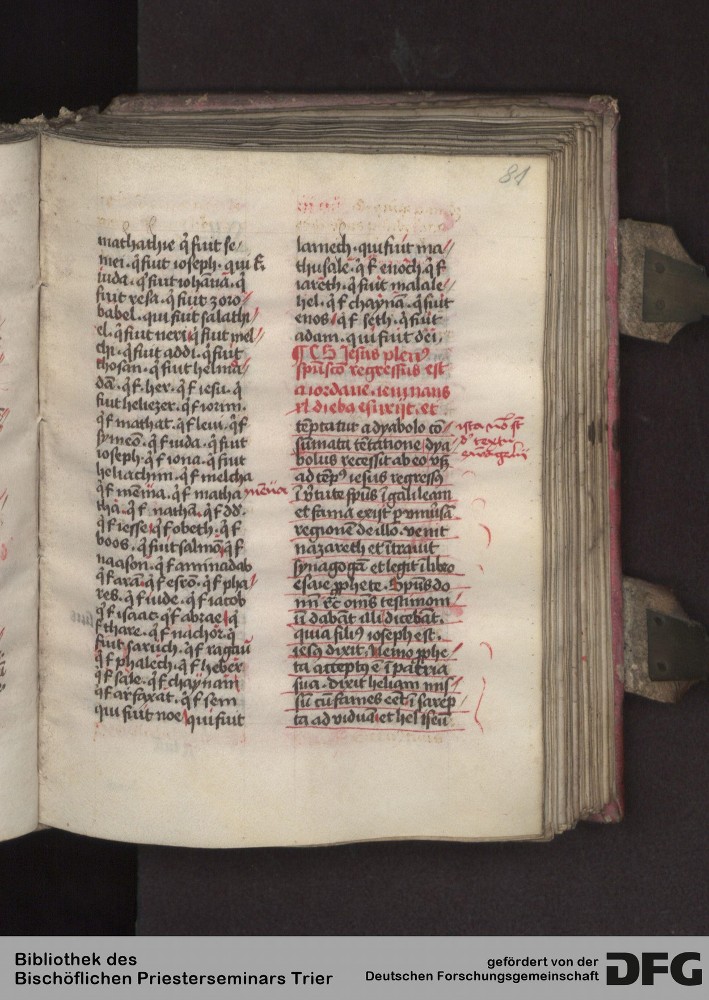 81
mathathie q̄ fuit se
mei · q̄ fuit ioseph · qui f̄
iuda · q̄ fuit iohāna · q̄
fuit resa · q̄ fuit zoro
babel · qui fuit salathi
el · q̄ fuit neri q̄ fuit mel
chi · q̄ fuit addi · q̄ fuit
chosan · q̄ fuit helma
dā · q̄ f · her · q̄ f iesu · q̄
fuit heliezer · q̄ f iorim ·
q̄ f mathat · q̄ f leui · q̄ f
symeō · q̄ f iuda · q̄ fuit
ioseph · q̄ f iona · q̄ fuit
heliachim · q̄ f melcha
q̄ f mēna · q̄ f matha menna
thā · q̄ f nathā · q̄ f dd̄ ·
q̄ f iesse q̄ f obeth · q̄ f
boos · q̄ fuit salmō q̄ f
naason · q̄ f aminadab
q̄ f arā · q̄ f esrō · q̄ f pha
res · q̄ f iude · q̄ f iacob
q̄ f isaac · q̄ f abrae q̄
f thare · q̄ f nachor · q̄
fuit saruch · q̄ f ragau
q̄ f phalech · q̄ f heber
q̄ f sale · q̄ f chaynan
q̄ f arfaxat · q̄ f sem
qui fuit noe qui fuit
lamech · qui fuit ma
thusale · q̄ f enoch · q̄ f
iareth · q̄ fuit malale
hel · q̄ f chaynā · q̄ fuit
enos q̄ f seth · q̄ fuit
adam · qui fuit dei ·
Jesus plen⁹
spūsco regressus est
a iordane · ieiunans
xl dieb⁹ esurijt · et
tēptatur a dyabolo cō
sūmata tētatione dya
bolus recessit ab eo vsq̄
ad temp⁹ iesus regress⁹
ī v̄tute spūs ī galileam
et fama exijt p vniūsā
regionē de illo · venit
nazareth et ītrauit
synagogā et legit ī libro
esaie pphete · Spūs do
mī ⁊c̄ oīns testimoni
ū dabāt illi dicebāt ·
quia fili⁹ ioseph est ·
iesꝰ dixit · Nemo pphe
ta accept⁹ ē ī patria
sua · dixit heliam mis
sū cū fames eēt ī sarep
ta ad viduā et helisēū
ista nō sūt
d' textu
euāgelij
Bibliothek des
Bischöflichen Priesterseminars Trier
gefördert von der
Deutschen Forschungsgemeinschaft
DFG